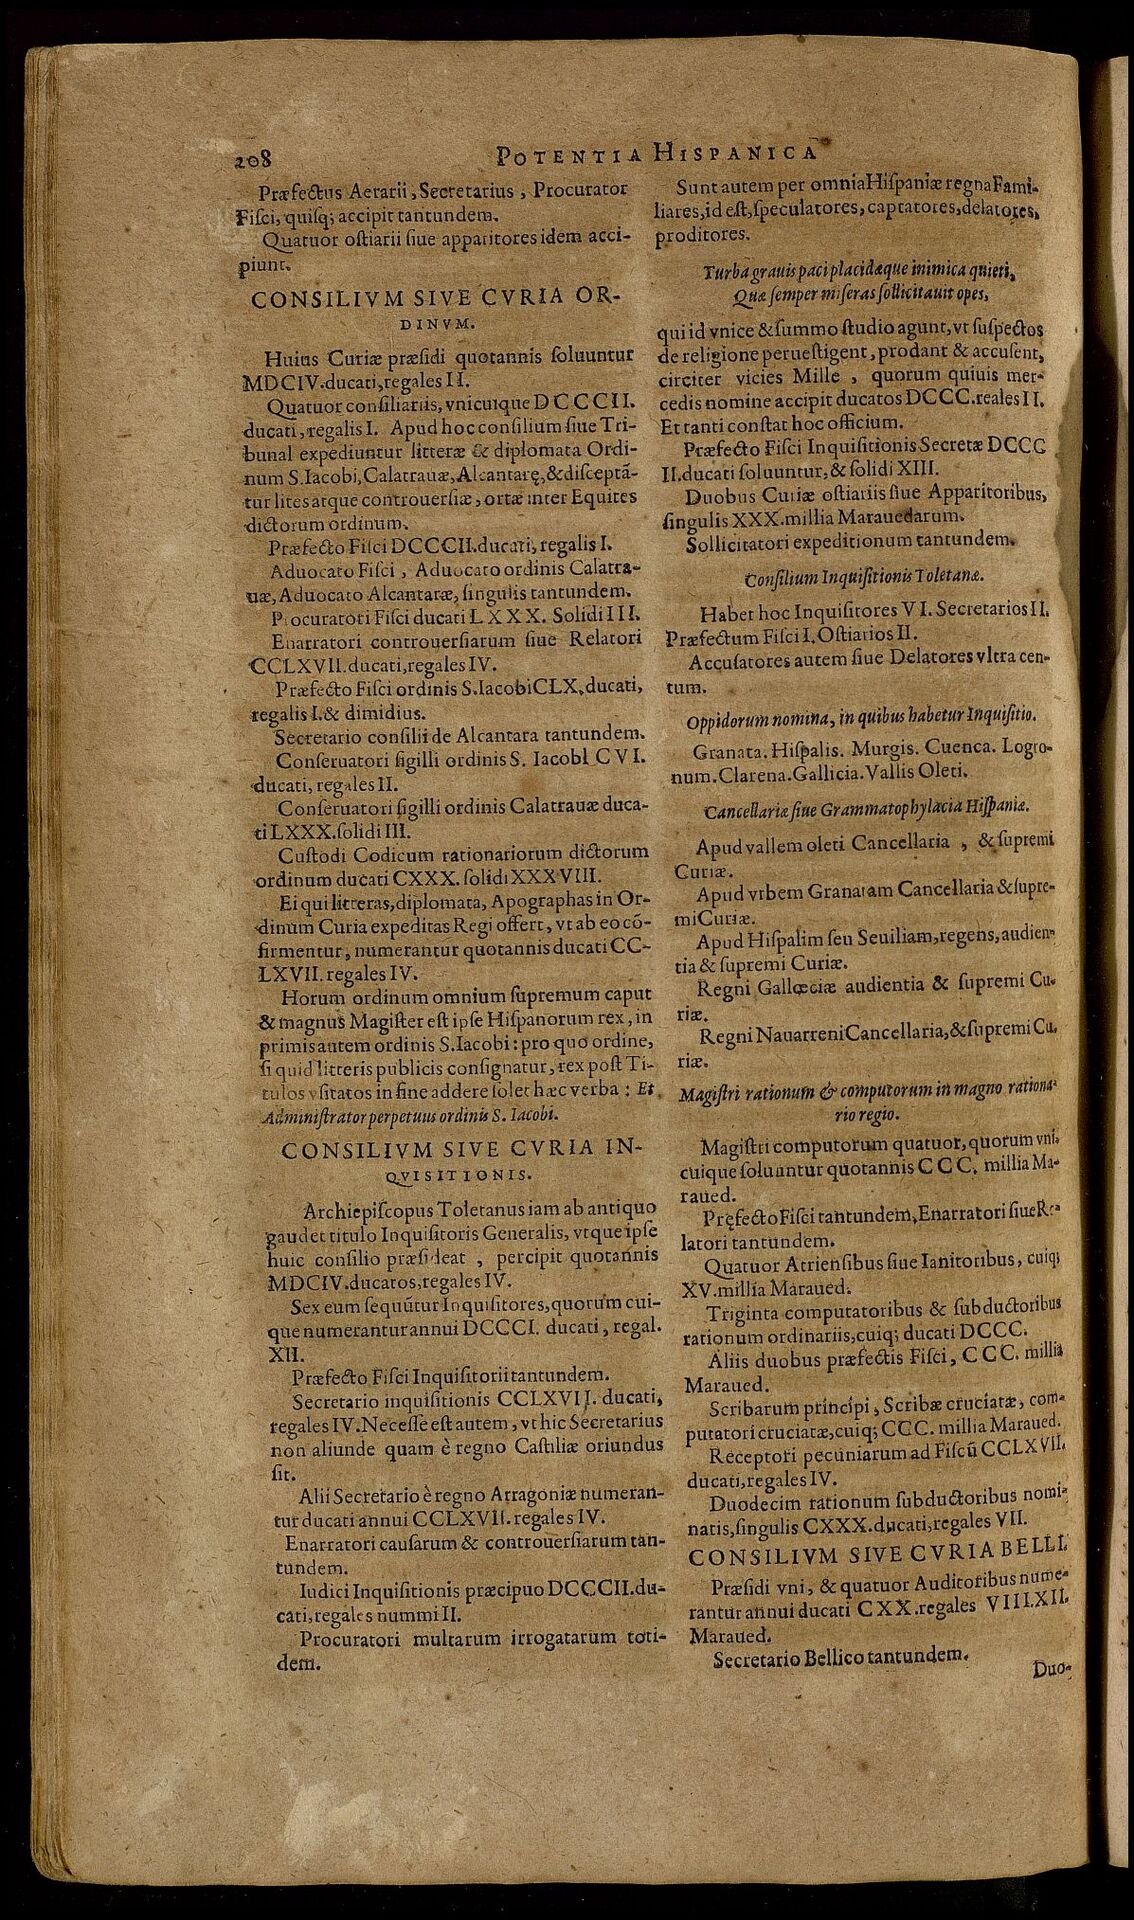 208
POTENTIA HISPANICA
Præfectus Aerarii, Secretarius, Procurator
Fisci, quisq; accipit tantundem.
Quatuor ostiarii siue apparitores idem acci-
piunt.
CONSILIVM SIVE CVRIA OR-
DINVM.
Huius Curiæ præsidi quotannis soluuntur
MDCIV. ducati, regales II.
Quatuor consiliariis, vnicuique DCCCII.
ducati, regalis I. Apud hoc consilium siue Tri-
bunal expediuntur litteræ & diplomata Ordi-
num S. Iacobi, Calatrauæ, Alcantarę, & disceptā-
tur lites atque controuersiæ, ortæ inter Equites
dictorum ordinum.
Præfecto Fisci DCCCII. ducati, regalis I.
Aduocato Fisci, Aduocato ordinis Calatra-
uæ, Aduocato Alcantaræ, singulis tantundem.
Procuratori Fisci ducati LXXX. Solidi III.
Enarratori controuersiarum siue Relatori
CCLXVII. ducati, regales IV.
Præfecto Fisci ordinis S. Iacobi CLX. ducati,
regalis I. & dimidius.
Secretario consilii de Alcantara tantundem.
Conseruatori sigilli ordinis S. IacobI CVI.
ducati, regales II.
Conseruatori sigilli ordinis Calatrauæ duca-
ti LXXX. solidi III.
Custodi Codicum rationariorum dictorum
ordinum ducati CXXX. solidi XXXVIII.
Ei qui litteras, diplomata, Apographas in Or-
dinum Curia expeditas Regi offert, vt ab eo cō-
firmentur, numerantur quotannis ducati CC-
LXVII. regales IV.
Horum ordinum omnium supremum caput
& magnus Magister est ipse Hispanorum rex, in
primis autem ordinis S. Iacobi: pro quo ordine,
si quid litteris publicis consignatur, rex post Ti-
tulos vsitatos in fine addere solet hæc verba: Et
Administrator perpetuus ordinis S. Iacobi.
CONSILIVM SIVE CVRIA IN-
QVISITIONIS.
Archiepiscopus Toletanus iam ab antiquo
gaudet titulo Inquisitoris Generalis, vtque ipse
huic consilio præsideat, percipit quotannis
MDCIV. ducatos, regales IV.
Sex eum sequūtur Inquisitores, quorum cui-
que numerantur annui DCCCI. ducati, regal.
XII.
Præfecto Fisci Inquisitorii tantundem.
Secretario inquisitionis CCLXVII. ducati,
regales IV. Necesse est autem, vt hic Secretarius
non aliunde quam è regno Castiliæ oriundus
sit.
Alii Secretario è regno Arragoniæ numeran-
tur ducati annui CCLXVII. regales IV.
Enarratori causarum & controuersiarum tan-
tundem.
Iudici Inquisitionis præcipuo DCCCII. du-
cati, regales nummi II.
Procuratori multarum irrogatarum toti-
dem.
Sunt autem per omnia Hispaniæ regna Fami-
liares, id est, speculatores, captatores, delatores,
proditores.
Turba grauis paci placidæque inimica quieti,
Quæ semper miseras sollicitauit opes,
qui id vnice & summo studio agunt, vt suspectos
de religione peruestigent, prodant & accusent,
circiter vicies Mille, quorum quiuis mer-
cedis nomine accipit ducatos DCCC. reales II.
Et tanti constat hoc officium.
Præfecto Fisci Inquisitionis Secretæ DCCC
II. ducati soluuntur, & solidi XIII.
Duobus Curiæ ostiariis siue Apparitoribus,
singulis XXX. millia Marauedarum.
Sollicitatori expeditionum tantundem.
Consilium Inquisitionis Toletanæ.
Habet hoc Inquisitores VI. Secretarios II.
Præfectum Fisci I. Ostiarios II.
Accusatores autem siue Delatores vltra cen-
tum.
Oppidorum nomina, in quibus habetur Inquisitio.
Granata. Hispalis. Murgis. Cuenca. Logro-
num. Clarena. Gallicia. Vallis Oleti.
Cancellariæ siue Grammatophylacia Hispaniæ.
Apud vallem oleti Cancellaria, & supremi
Curiæ.
Apud vrbem Granatam Cancellaria & supre-
mi Curiæ.
Apud Hispalim seu Seuiliam, regens, audien-
tia & supremi Curiæ.
Regni Gallœciæ audientia & supremi Cu-
riæ.
Regni Nauarreni Cancellaria, & supremi Cu-
riæ.
Magistri rationum & computorum in magno rationa-
rio regio.
Magistri computorum quatuor, quorum vni-
cuique soluuntur quotannis CCC. millia Ma-
raued.
Pręfecto Fisci tantundem, Enarratori siue Re-
latori tantundem.
Quatuor Atriensibus siue Ianitoribus, cuiq;
XV. millia Maraued.
Triginta computatoribus & subductoribus
rationum ordinariis, cuiq; ducati DCCC.
Aliis duobus præfectis Fisci, CCC. millia
Maraued.
Scribarum principi, Scribæ cruciatæ, com-
putatori cruciatæ, cuiq; CCC. millia Maraued.
Receptori pecuniarum ad Fiscū CCLXVII.
ducati, regales IV.
Duodecim rationum subductoribus nomi-
natis, singulis CXXX. ducati, regales VII.
CONSILIVM SIVE CVRIA BELLI.
Præsidi vni, & quatuor Auditoribus nume-
rantur annui ducati CXX. regales VIII. XII.
Maraued.
Secretario Bellico tantundem.
Duo-